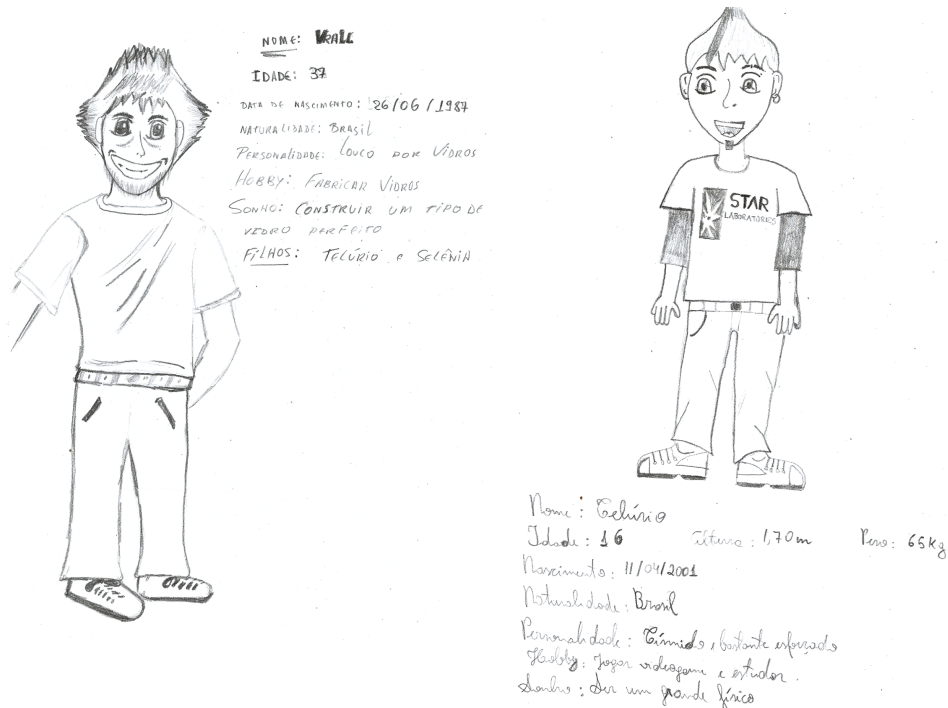 NOME: VRALL
IDADE: 37
DATA DE NASCIMENTO: 26/06/1987
NATURALIDADE: BRASIL
PERSONALIDADE: LOUCO POR VIDROS
HOBBY: FABRICAR VIDROS
SONHO: CONSTRUIR UM TIPO DE
VIDRO PERFEITO
FILHOS: TELÚRIO e SELÊNIA
STAR
LABORATORIES
Nome: Telúrio
Idade: 16 Altura: 1,70m Peso: 65Kg
Nascimento: 11/04/2001
Naturalidade: Brasil
Personalidade: Tímido e bastante esforçado
Hobby: Jogar videogame e estudar.
Sonho: Ser um grande físico